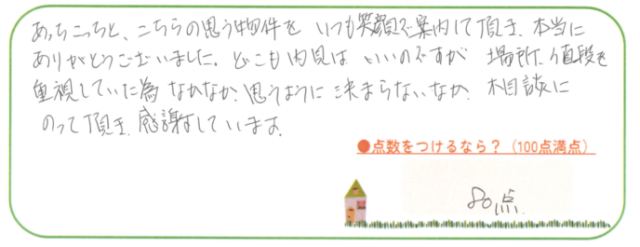 あっちこっちと、こちらの思う物件を いつも笑顔で案内して頂き、本当に
ありがとうございました。どこも内見は いいのですが 場所、値段を
重視していた為 なかなか、思うように 決まらないなか、相談に
のって頂き、感謝しています。
●点数をつけるなら？（100点満点）
80点